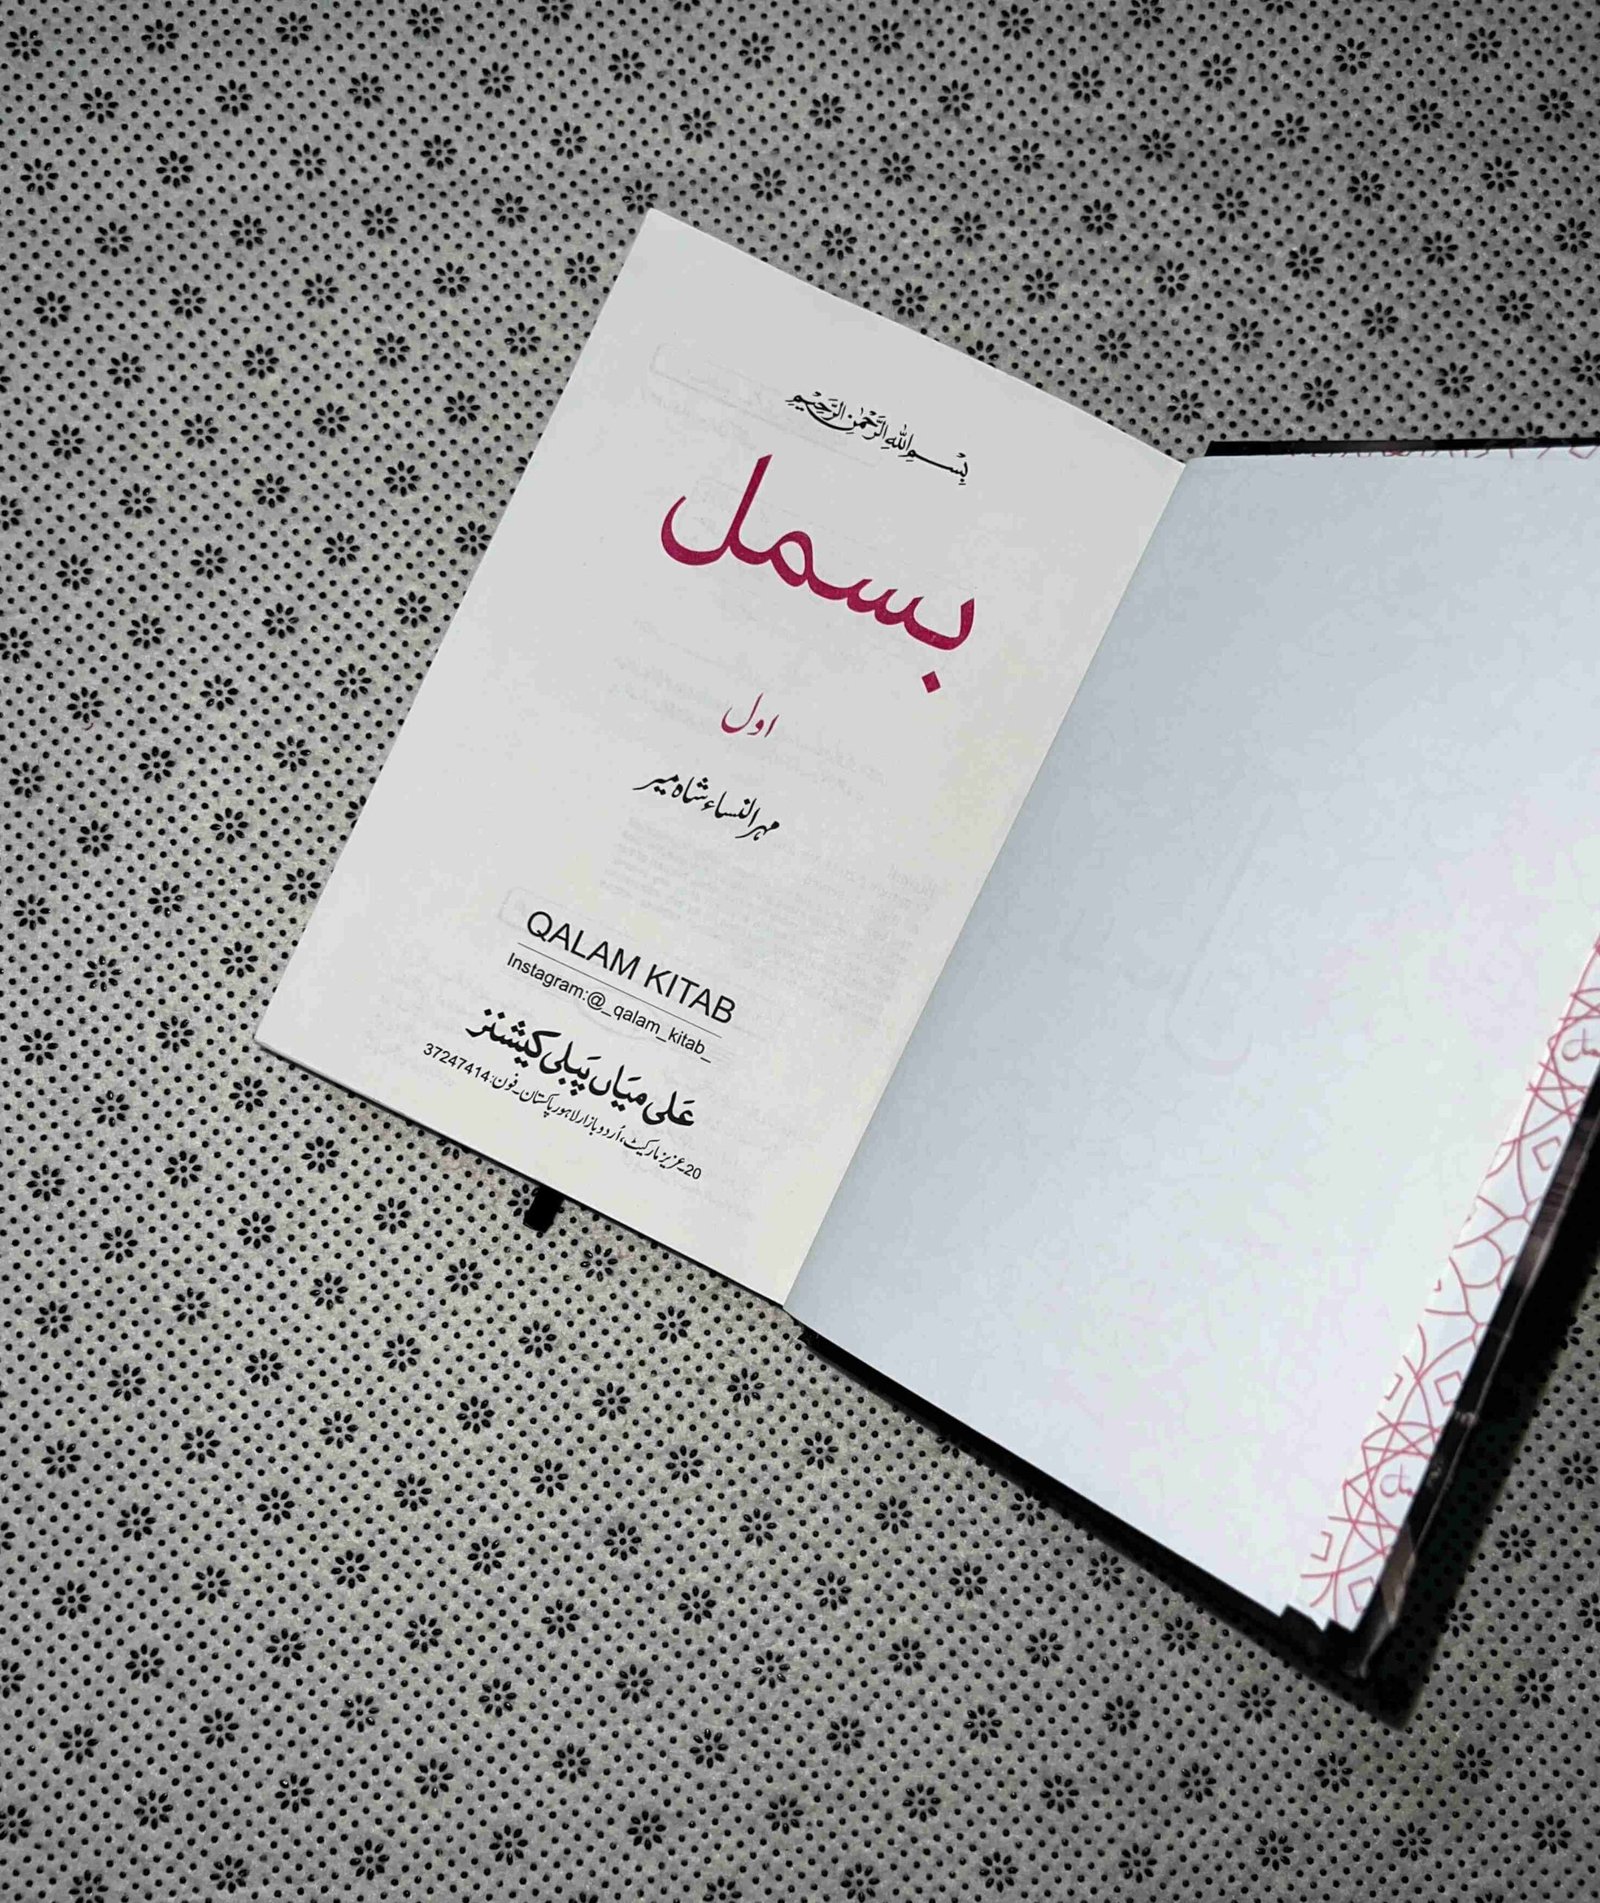 بِسْمِ اللهِ الرَّحْمٰنِ الرَّحِيْمِ
بسمل
اول
مہرالنساء شاہ میر
QALAM KITAB
Instagram:@_qalam_kitab_
عَلی مِیَاں پَبلی کیشَنز
20۔عزیز مارکیٹ، اُردو بازار لاہور پاکستان۔ فون: 37247414